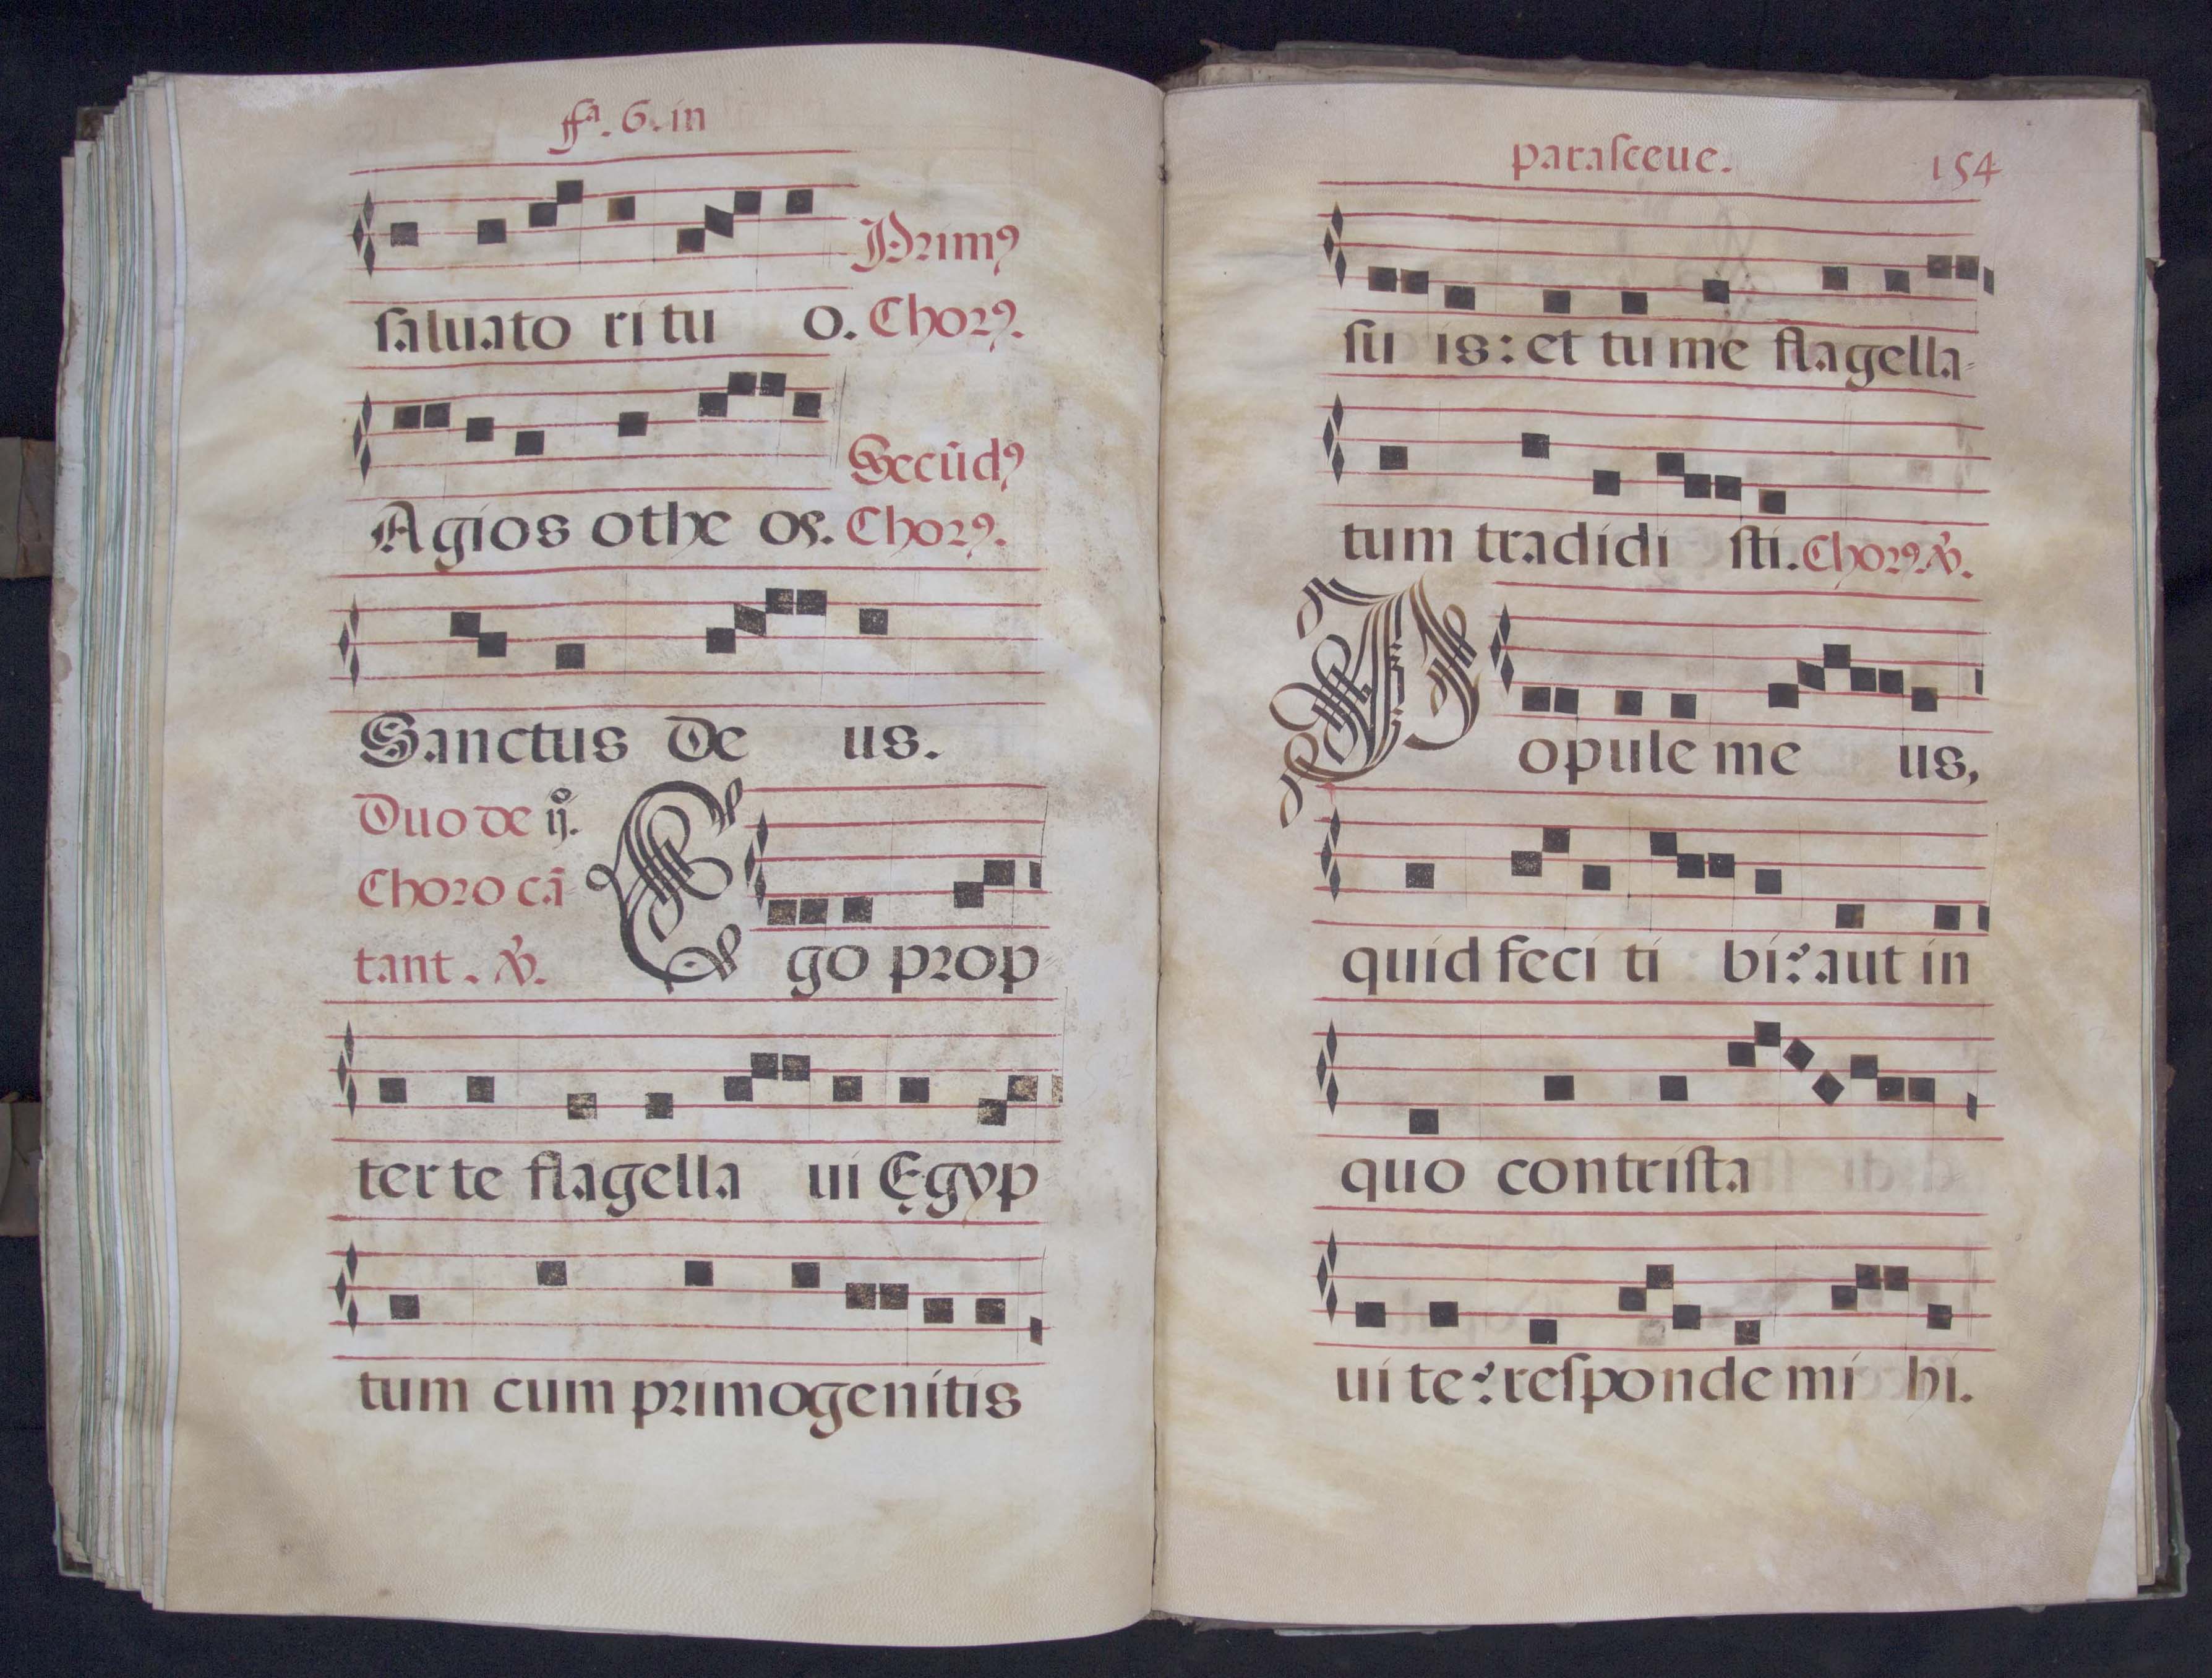 ffª. 6. in
saluato ri tu o. Primꝰ
Chorꝰ.
Agios othe os. Secūdꝰ
Chorꝰ.
Sanctus De us.
Duo de ijº.
Choro cā
tant. ℣.
Ego prop
ter te flagella ui Egyp
tum cum primogenitis
parasceue. 154
su is: et tu me flagella-
tum tradidi sti. Chorꝰ. ℣.
Popule me us,
quid feci ti bi? aut in
quo contrista
ui te? responde mi hi.